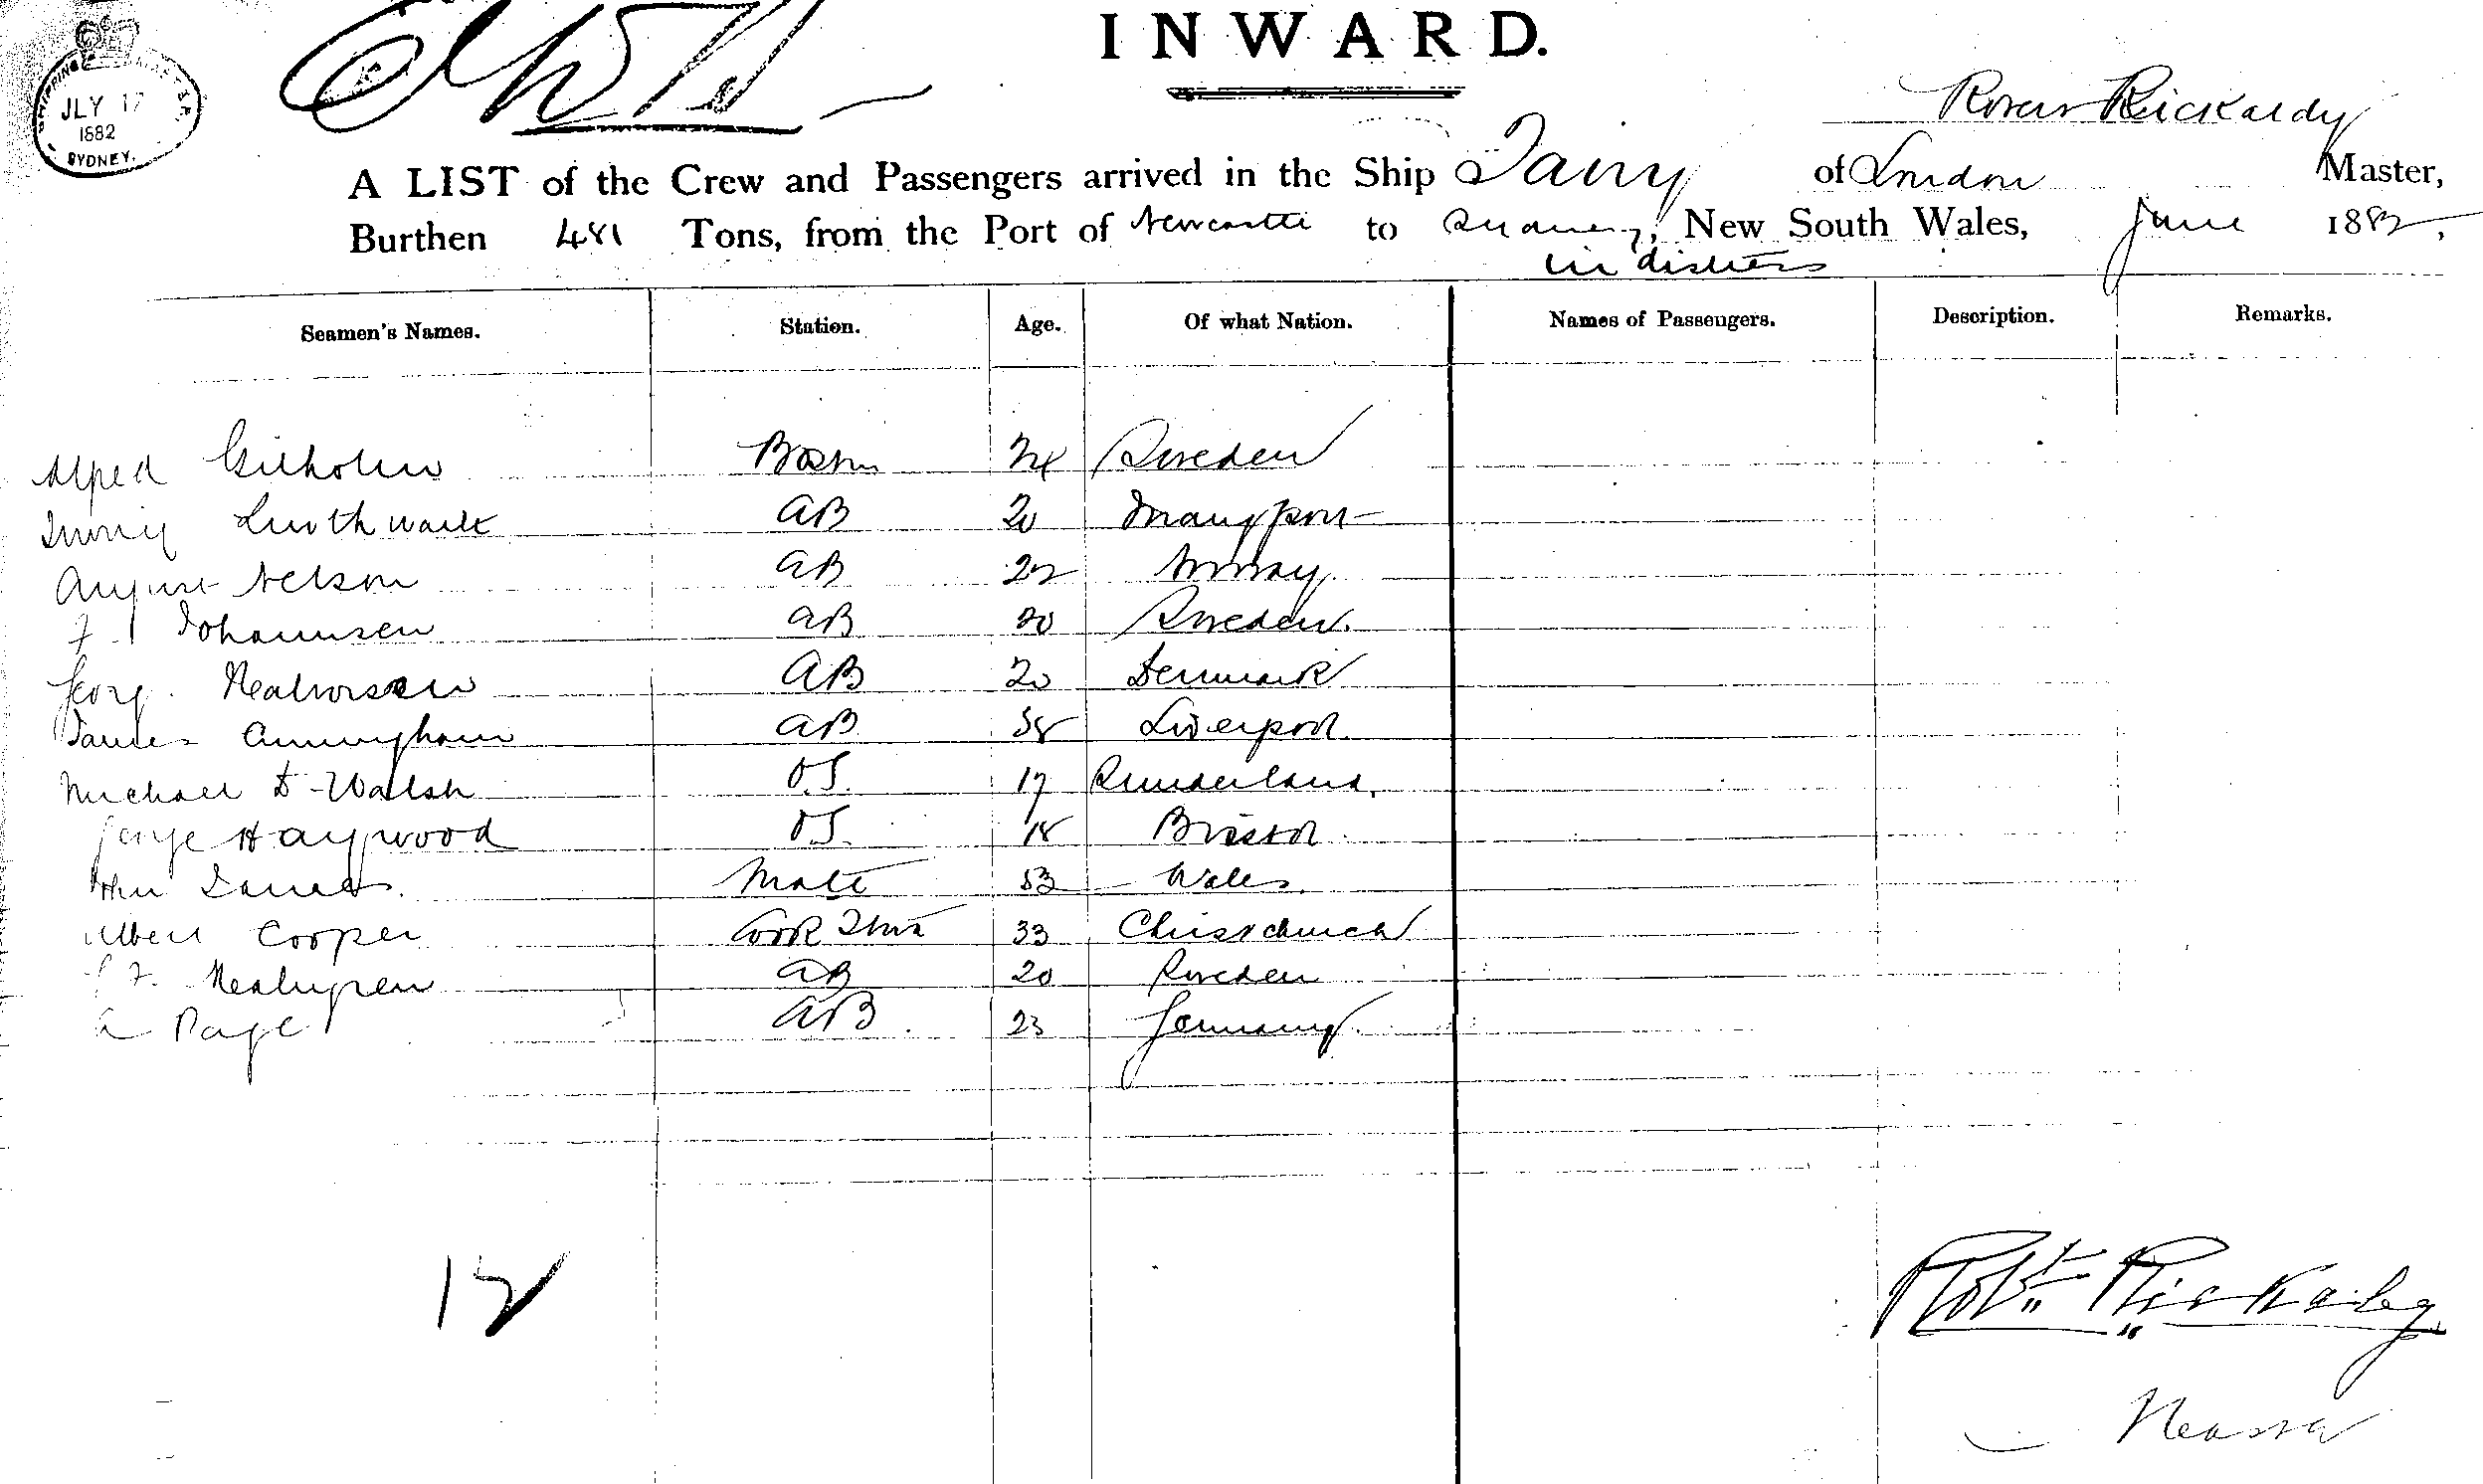 INWARD.
SHIPPING
JLY 17
1882
SYDNEY.
Rickardy
A LIST of the Crew and Passengers arrived in the Ship of London Master,
Burthen 481 Tons, from the Port of Newcastle to Sydney, New South Wales, June 1882,
in distress
Seamen's Names. Station. Age. Of what Nation. Names of Passengers. Description. Remarks.
Alfred Bosn 24 Sweden
AB 20 Maryport
August Nelson AB 22 Norway
F Johannsen AB 20 Sweden.
Georg. AB 20 Denmark
James Cunningham AB 38 Liverpool
Michael D-Walsh O.S. 17 Sunderland.
George Haywood O.S. 18 Bristol
John Mate 53 Wales.
Albert Cooper Cook 33 Christchurch
AB 20 Sweden
A Page AB. 23 Germany
12
Robt.